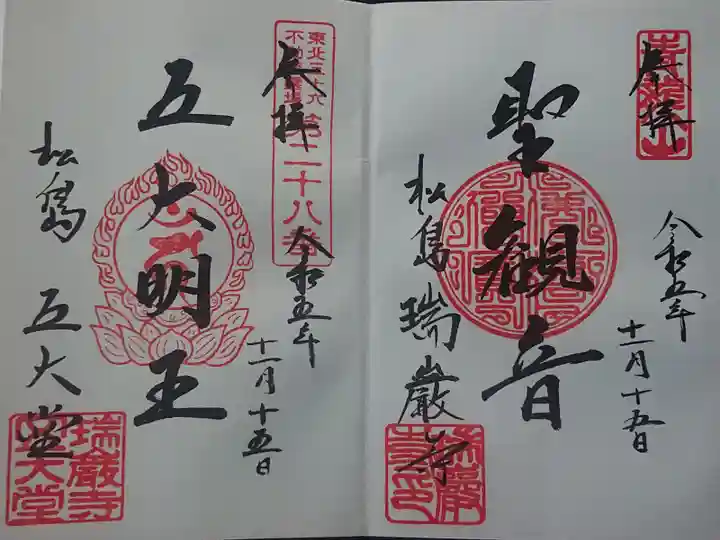 奉拝
聖観音
令和五年
十一月十五日
松島 瑞巌寺
奉拝
東北三十六
不動尊霊場
第二十八番
五大明王
令和五年
十一月十五日
松島 五大堂
瑞巌寺
五大堂